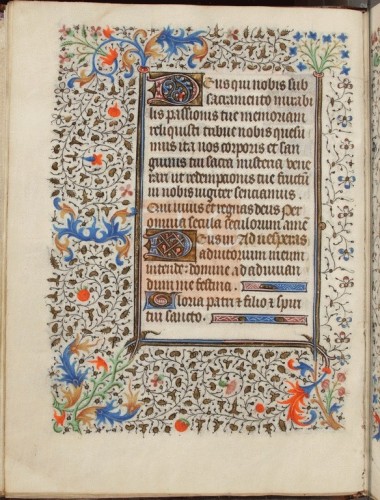 Deus qui nobis sub
sacramento mirabi
lis passionis tue memoriam
reliquisti tribue nobis quesu
mus ita nos corporis et san
guinis tui sacra misteria vene
rari ut redemptionis tue fructu
in nobis iugiter senciamus
Qui vivis et regnas deus per
omnia secula seculorum amē
Deus in Ad vesperas
adiutorium meum
intende domine ad adiuvan
dum me festina.
Gloria patri et filio et spiri
tui sancto.